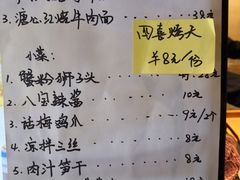 3. 溏心红烧牛肉面 38元
小菜:
1. 蟹粉狮子头
2. 八宝辣酱 10元
3. 话梅鸡爪 9元/2个
4. 凉拌三丝 8元
5. 肉汁笋干 8元
四喜烤夫
¥8元/份